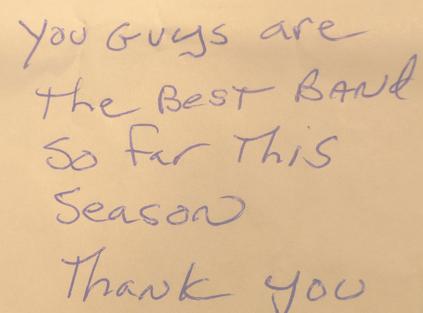 You Guys are
the BEST BANd
So far This
Season
Thank you